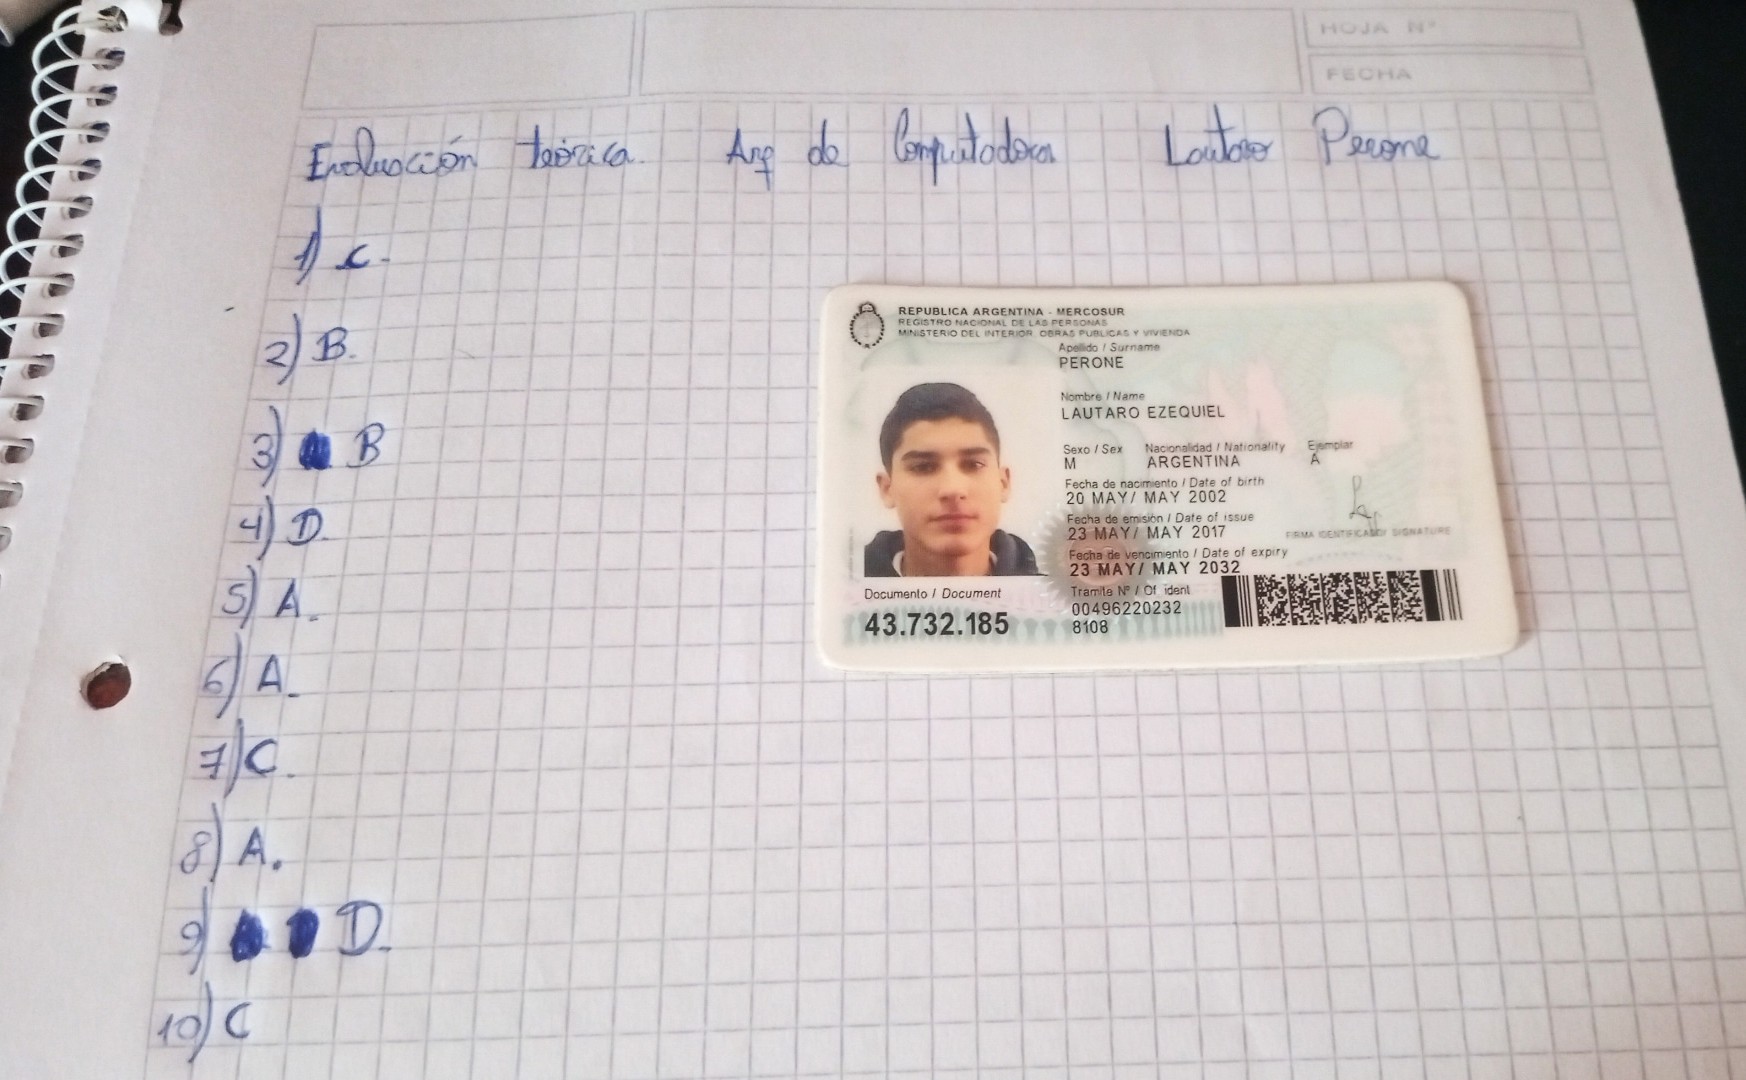 HOJA Nº
FECHA
Evaluación teórica. Arq de Computadoras Lautaro Perone
1) C.
2) B.
3) B
4) D.
5) A.
6) A.
7) C.
8) A.
9) D.
10) C
REPUBLICA ARGENTINA - MERCOSUR
REGISTRO NACIONAL DE LAS PERSONAS
MINISTERIO DEL INTERIOR, OBRAS PUBLICAS Y VIVIENDA
Apellido / Surname
PERONE
Nombre / Name
LAUTARO EZEQUIEL
Sexo / Sex Nacionalidad / Nationality Ejemplar
M ARGENTINA A
Fecha de nacimiento / Date of birth
20 MAY/ MAY 2002
Fecha de emisión / Date of issue
23 MAY/ MAY 2017
FIRMA IDENTIFICADO/ SIGNATURE
Fecha de vencimiento / Date of expiry
23 MAY/ MAY 2032
Documento / Document
43.732.185
Tramite Nº / Of. ident
00496220232
8108